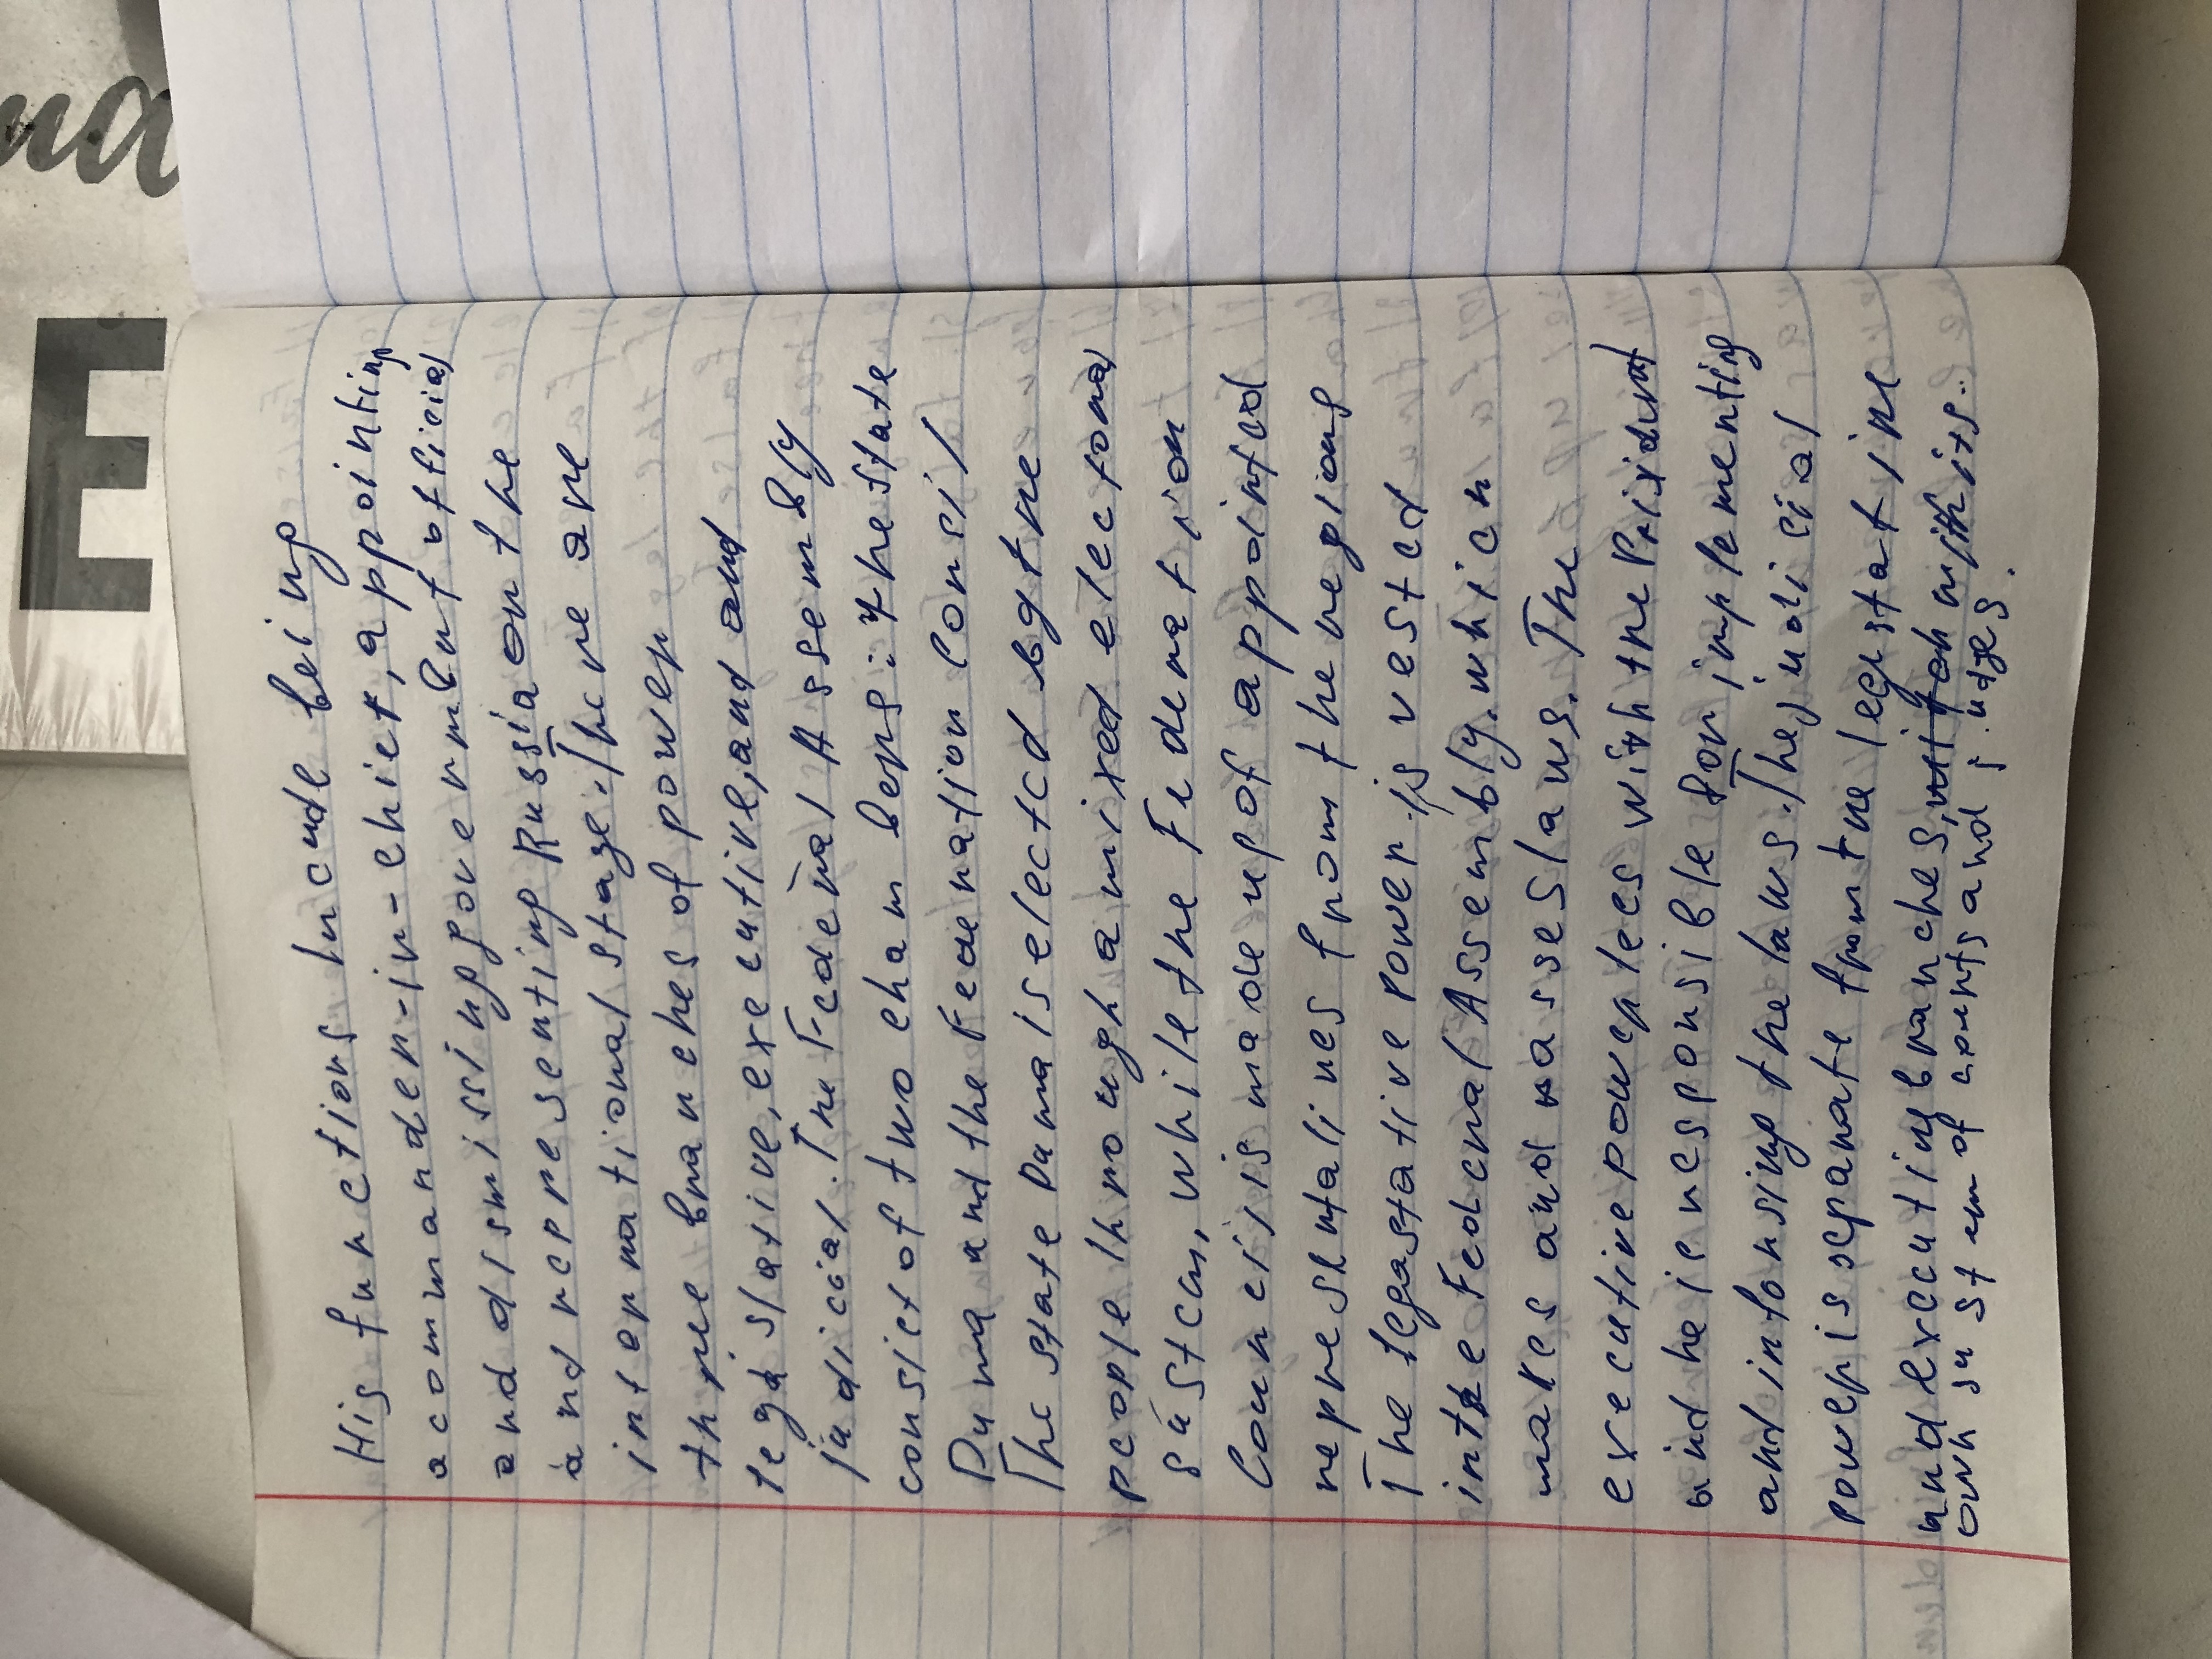 His functions Incude being
acommander-in-chief, appointing
and dismissing government official
and reppresenting Russia on the
international stage. There are
three branches of power
legislative, executive, and and
judiccial. The Federal Assembly
consict of two chambers: the State
Duma and the Federation Concil
The State Duma is elected by the
people through a mixed electoral
sustem, while the Federation
Council is made up of appointed
representatives from the regions
The legastative power is vested
in the Federal Assembly. which
makes and passes laws. The
executive power lees with the President
and he ie responsible for implementing
and inforsing the laws. The judicial
power is separate from the legistative
and executing branches, with its
own sustem of courts and judges.
ma
E